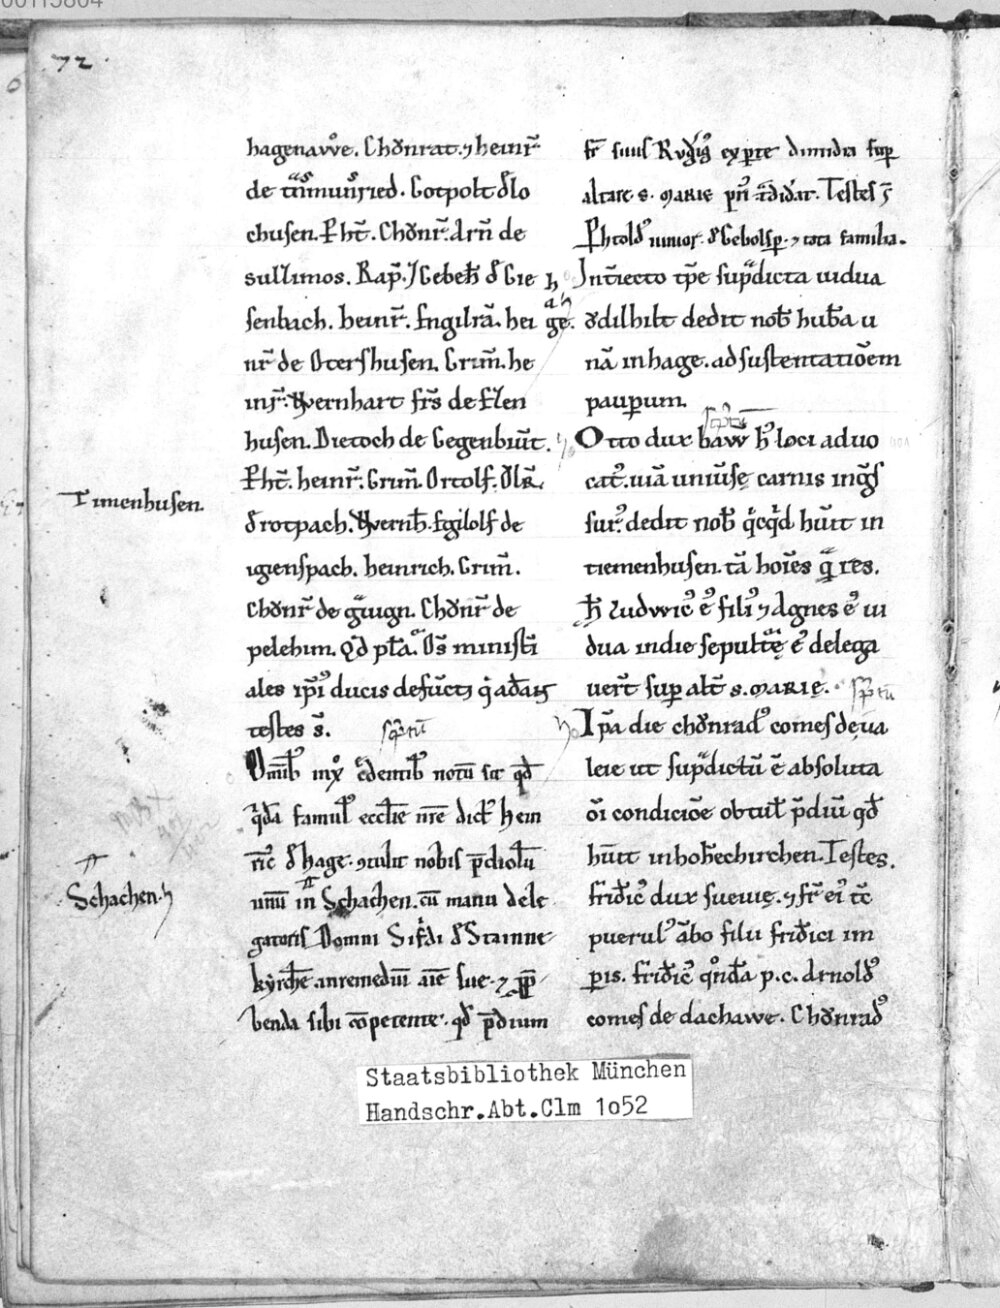 00115804
72.
hagenavve. Chŏnrat. ⁊ heinr̄
de tn̄munſried. Gotpolt d̄ lo
chuſen. P̱ht̄. Chŏnr̄. Arn̄ de
sullimos. Rap̄. ⁊ Gebeh̄ d̄ Gie
ſenbach. heinr̄. Engilrā. hei
nr̄ de Oterſhuſen. Grim̄. he
inr̄. Wernhart fr̄s de Elen
huſen. Dietoch de Gegenbiut̄.
P̱ht̄. heinr̄. Grim̄. Ortolf.
d̄ rotpach. Wernh̄. Egilolf de
ugienſpach. heinrich. Grim̄.
Chŏnr̄ de Chŏnr̄ de
pelehim. Qd̄ pt̄a. Os̄ miniſt̄i
ales ip̄i ducis defūcti
teſtes s̄.
Timenhuſen.
Omīb notū ſit qd̄
famul eccl̄ie nr̄e dict hein
ric̄ d̄ hage. ꝯtulit nobiſ p̄diolū
unū in Schachen. cū manu dele
gatoriſ Domni Sifͥdi d̄ Stainne
kyrch̄e in remediū aīe ſue. ⁊ ꝓp̄
benda ſibi cōpetente. qd̄ p̄dium
Schachen.
fr̄ ſuuſ Rvdgͥ ex parte dimidia ſuꝑ
altare s. MARIE Teſteſ s̄
P̱htold iunior. d̄ Gebolſp̱. ⁊ tota familia.
Int̄iecto tp̄e ſupͣdicta uidua
ŏdilhilt dedit nob̄ hub̄a u
nā in hage. ad ſuſtentatiōem
pauꝑum.
Otto dux baw̄ hͥ loci aduo
cat. uiā uniūſe carnis inḡſ
ſur. dedit nob̄ qͥcqͥd hūit in
tiemenhuſen. tā hoīes qͣ res.
Hͥ ludwic ē fili ⁊ Agnes ē ui
dua in die ſepultͣe ē delega
uer̄t ſuꝑ alt̄ s. MARIE.
Ip̄a die chŏnrad comeſ de ua
leie ut ſupͣdictū ē abſoluta
ōi condiciōe obtul̄ p̄diū qd̄
hūit in hoh̄echirchen. Teſtes.
fridͥic dux ſueuię. ⁊ fr̄ ei tc̄
puerul ābo filii fridͥici im
ꝑis. fridͥic qͦndā p. c. Arnold
comeſ de dachawe. Chŏnrad
Staatsbibliothek München
Handschr.Abt.Clm 1o52